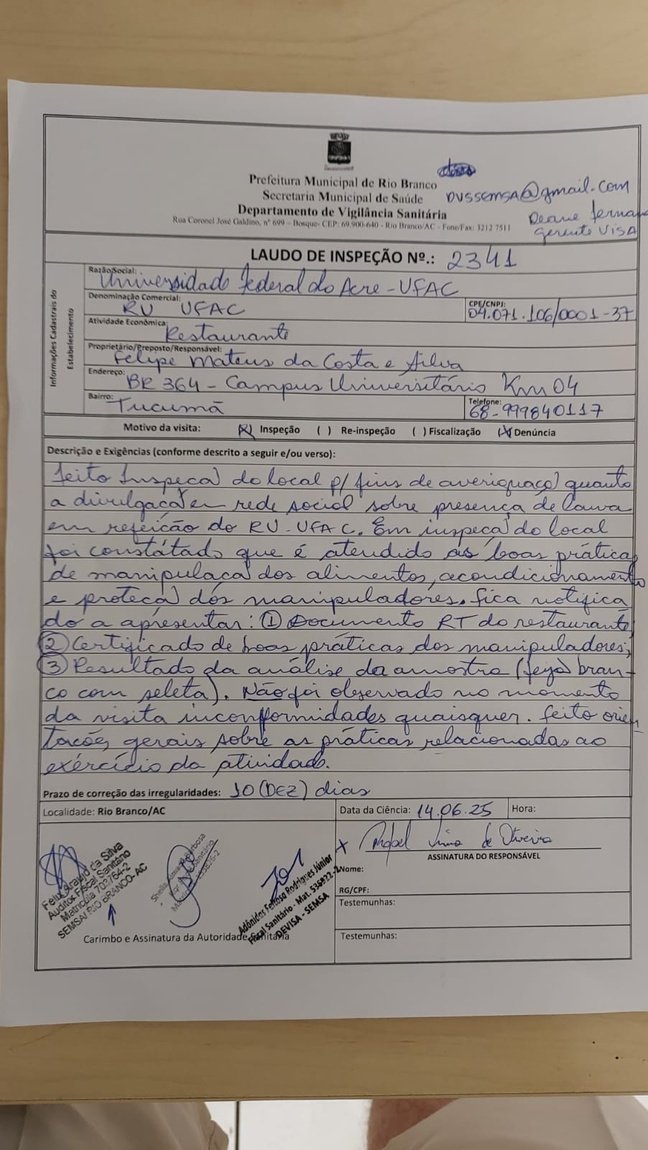 Prefeitura Municipal de Rio Branco
Secretaria Municipal de Saúde
Departamento de Vigilância Sanitária
Rua Coronel José Galdino, nº 699 – Bosque- CEP: 69.900-640 - Rio Branco/AC - Fone/Fax: 3212 7511
DVSSEMSA@gmail.com
Deane Fernan
gerente VISA
LAUDO DE INSPEÇÃO Nº.: 2341
Informações Cadastrais do Estabelecimento
Razão Social: Universidade Federal do Acre - UFAC
Denominação Comercial: RU UFAC
CPF/CNPJ: 04.071.106/0001-37
Atividade Econômica: Restaurante
Proprietário/Preposto/Responsável: Felipe Mateus da Costa e Silva
Endereço: BR 364 - Campus Universitário Km 04
Bairro: Tucumã
Telefone: 68-999840117
Motivo da visita: (X) Inspeção ( ) Re-inspeção ( ) Fiscalização (X) Denúncia
Descrição e Exigências (conforme descrito a seguir e/ou verso):
Feito Inspeçã do local p/ fins de averiguaçã quanto
a divulgaçã em rede social sobre presença de larva
em refeição do RU-UFAC. Em inspeçã do local
foi constatado que é atendido as boas práticas
de manipulaçã dos alimentos, acondicionamento
e proteçã dos manipuladores. Fica notifica
do a apresentar: ① Documento RT do restaurante;
② Certificado de boas práticas dos manipuladores;
③ Resultado da análise da amostra (feijã bran-
co com seleta). Não foi observado no momento
da visita inconformidades quaisquer. Feito orien
tações gerais sobre as práticas relacionadas ao
exercício da atividade.
Prazo de correção das irregularidades: 10 (DEZ) dias
Localidade: Rio Branco/AC
Data da Ciência: 14.06.25 Hora:
Felix Araujo da Silva
Auditor Fiscal Sanitário
Matrícula 702764-2
SEMSA/ RIO BRANCO-AC
Fiscal Sanitário - Mat.
DEVISA - SEMSA
Carimbo e Assinatura da Autoridade Sanitária
x Rafael Lima de Oliveira
ASSINATURA DO RESPONSÁVEL
Nome:
RG/CPF:
Testemunhas:
Testemunhas: